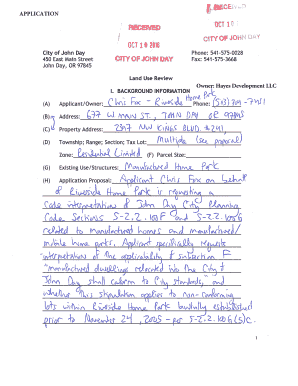 APPLICATION
RECEIVED
OCT 10 2016
CITY OF JOHN DAY
RECEIVED
OCT 10
CITY OF JOHN DAY
City of John Day
450 East Main Street
John Day, OR 97845
Phone: 541-575-0028
Fax: 541-575-3668
Land Use Review
Owner: Hayes Development LLC
I. BACKGROUND INFORMATION
(A) Applicant/Owner: Chris Fox - Riverside Home Park Phone: (503) 709-7451
(B) Address: 677 W MAIN ST, JOHN DAY OR 97845
(C) Property Address: 2307 NW KINGS BLVD #241,
(D) Township; Range; Section; Tax Lot: Multiple (see proposal)
Zone: Residential Limited (F) Parcel Size:
(G) Existing Use/Structures: Manufactured Home Park
(H) Application Proposal: Applicant Chris Fox on behalf
of Riverside Home Park is requesting a
code interpretation of John Day City Planning
Code Sections 5-2.2.100F and 5-2.2.100G
related to manufactured homes and manufactured/
mobile home parks. Applicant specifically requests
interpretation of the applicability of subsection F
"manufactured dwellings relocated into the City of
John Day shall conform to City standards," and
whether this stipulation applies to non-conforming
lots within Riverside Home Park lawfully established
prior to November 24, 2005 - per 5-2.2.100G(5)c.
1